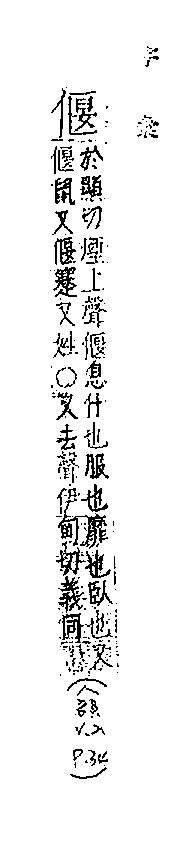 字彙
偃
於顯切煙上聲偃息什也服也靡也臥也又
偃鼠又偃蹇又姓〇又去聲伊甸切義同
(人部
P.34)